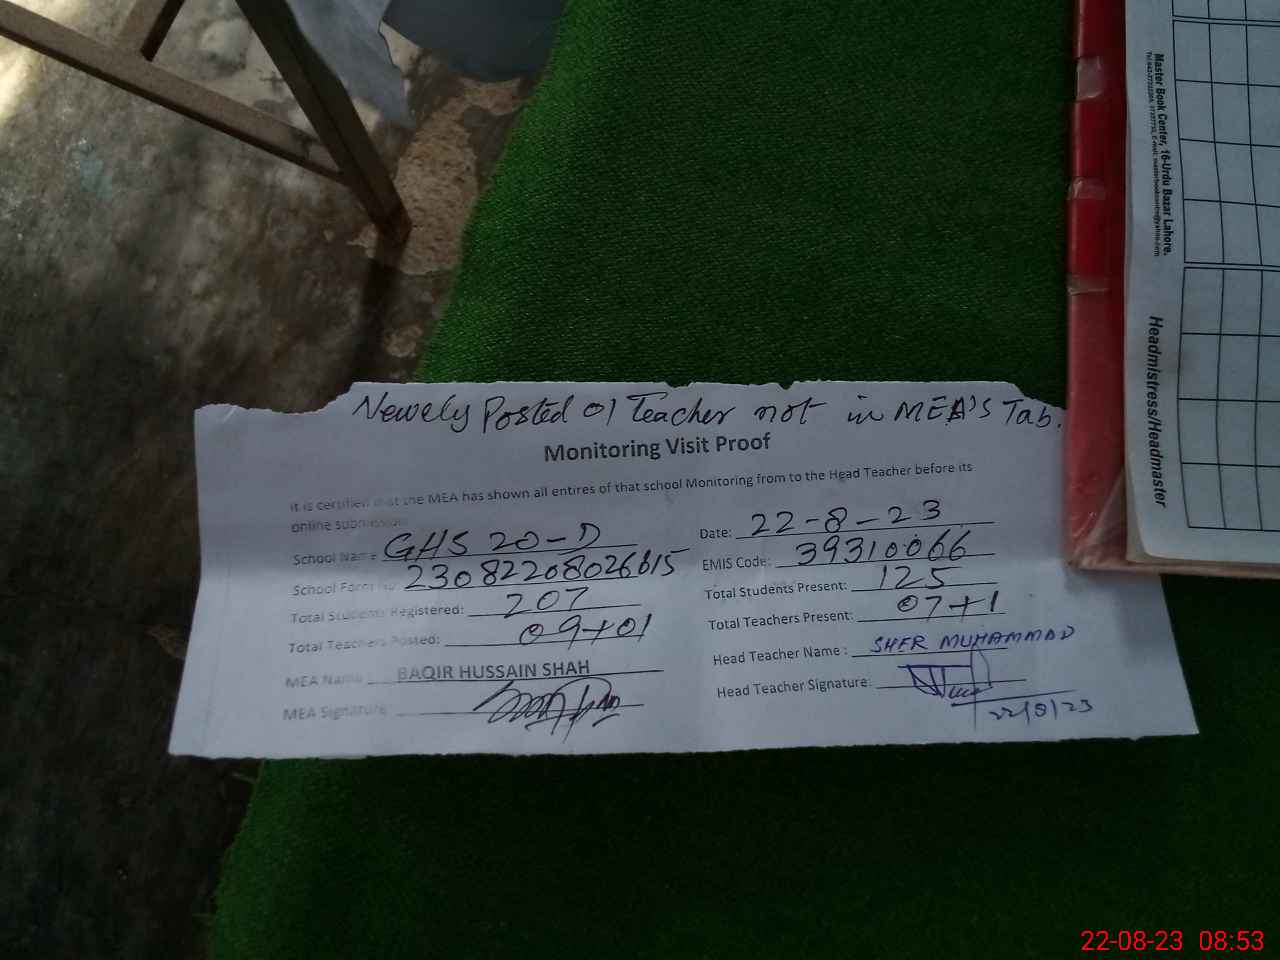 Newely Posted 01 Teacher not in MEA'S Tab.
Monitoring Visit Proof
It is certified that the MEA has shown all entires of that school Monitoring from to the Head Teacher before its
online submission
School Name GHS 20-D
Date: 22-8-23
School Form No:
EMIS Code: 39310066
Total Students Registered: 207
Total Students Present: 125
Total Teachers Posted: 09+01
Total Teachers Present: 07+1
MEA Name: BAQIR HUSSAIN SHAH
Head Teacher Name : SHER MUHAMMAD
MEA Signature
Head Teacher Signature:
22/8/23
Master Book Center, 16-Urdu Bazar Lahore.
Headmistress/Headmaster
22-08-23 08:53